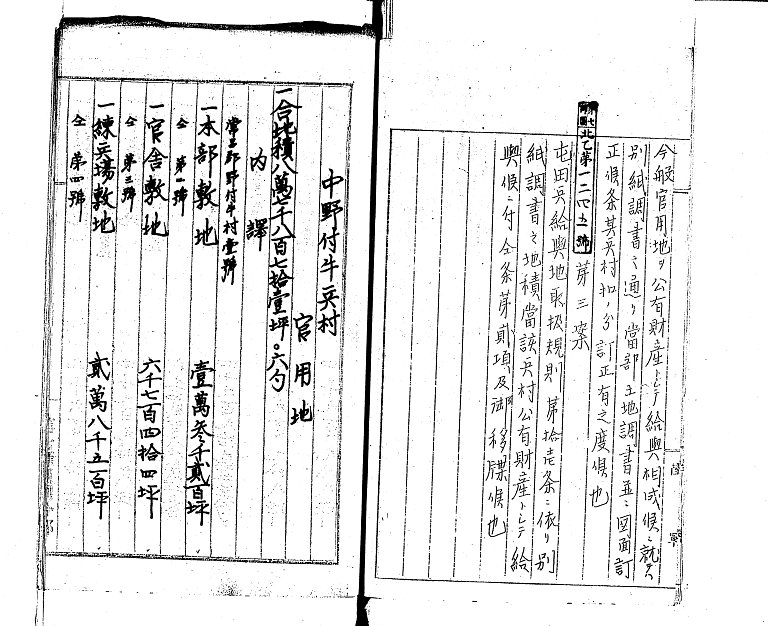 今般官用地ヲ公有財産トシテ給與相成候ニ就テハ
別紙調書之通リ當部土地調書並ニ図面訂
正候条其兵村扣ノ分訂正有之度候也
北乙第一二四五號 第三案
屯田兵給與地取扱規則第拾壱条ニ依リ別
紙調書之地積當該兵村公有財産トシテ給
與候ニ付仝条第貳項及御移牒候也
中野付牛兵村
官用地
一合地積八萬七千八百七拾壹坪〇六勺
内譯
常呂郡野付牛村壹號
一本部敷地 壹萬参千貳百坪
仝 第一號
一官舎敷地 六千七百四拾四坪
仝 第三號
一練兵場敷地 貳萬八千五百坪
仝 第四號